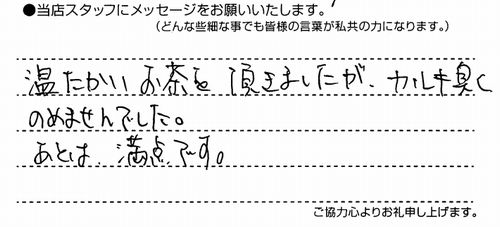 ●当店スタッフにメッセージをお願いいたします。
(どんな些細な事でも皆様の言葉が私共の力になります。)
温たかいお茶を頂きましたが、カルキ臭く
のめませんでした。
あとは、満点です。
ご協力心よりお礼申し上げます。